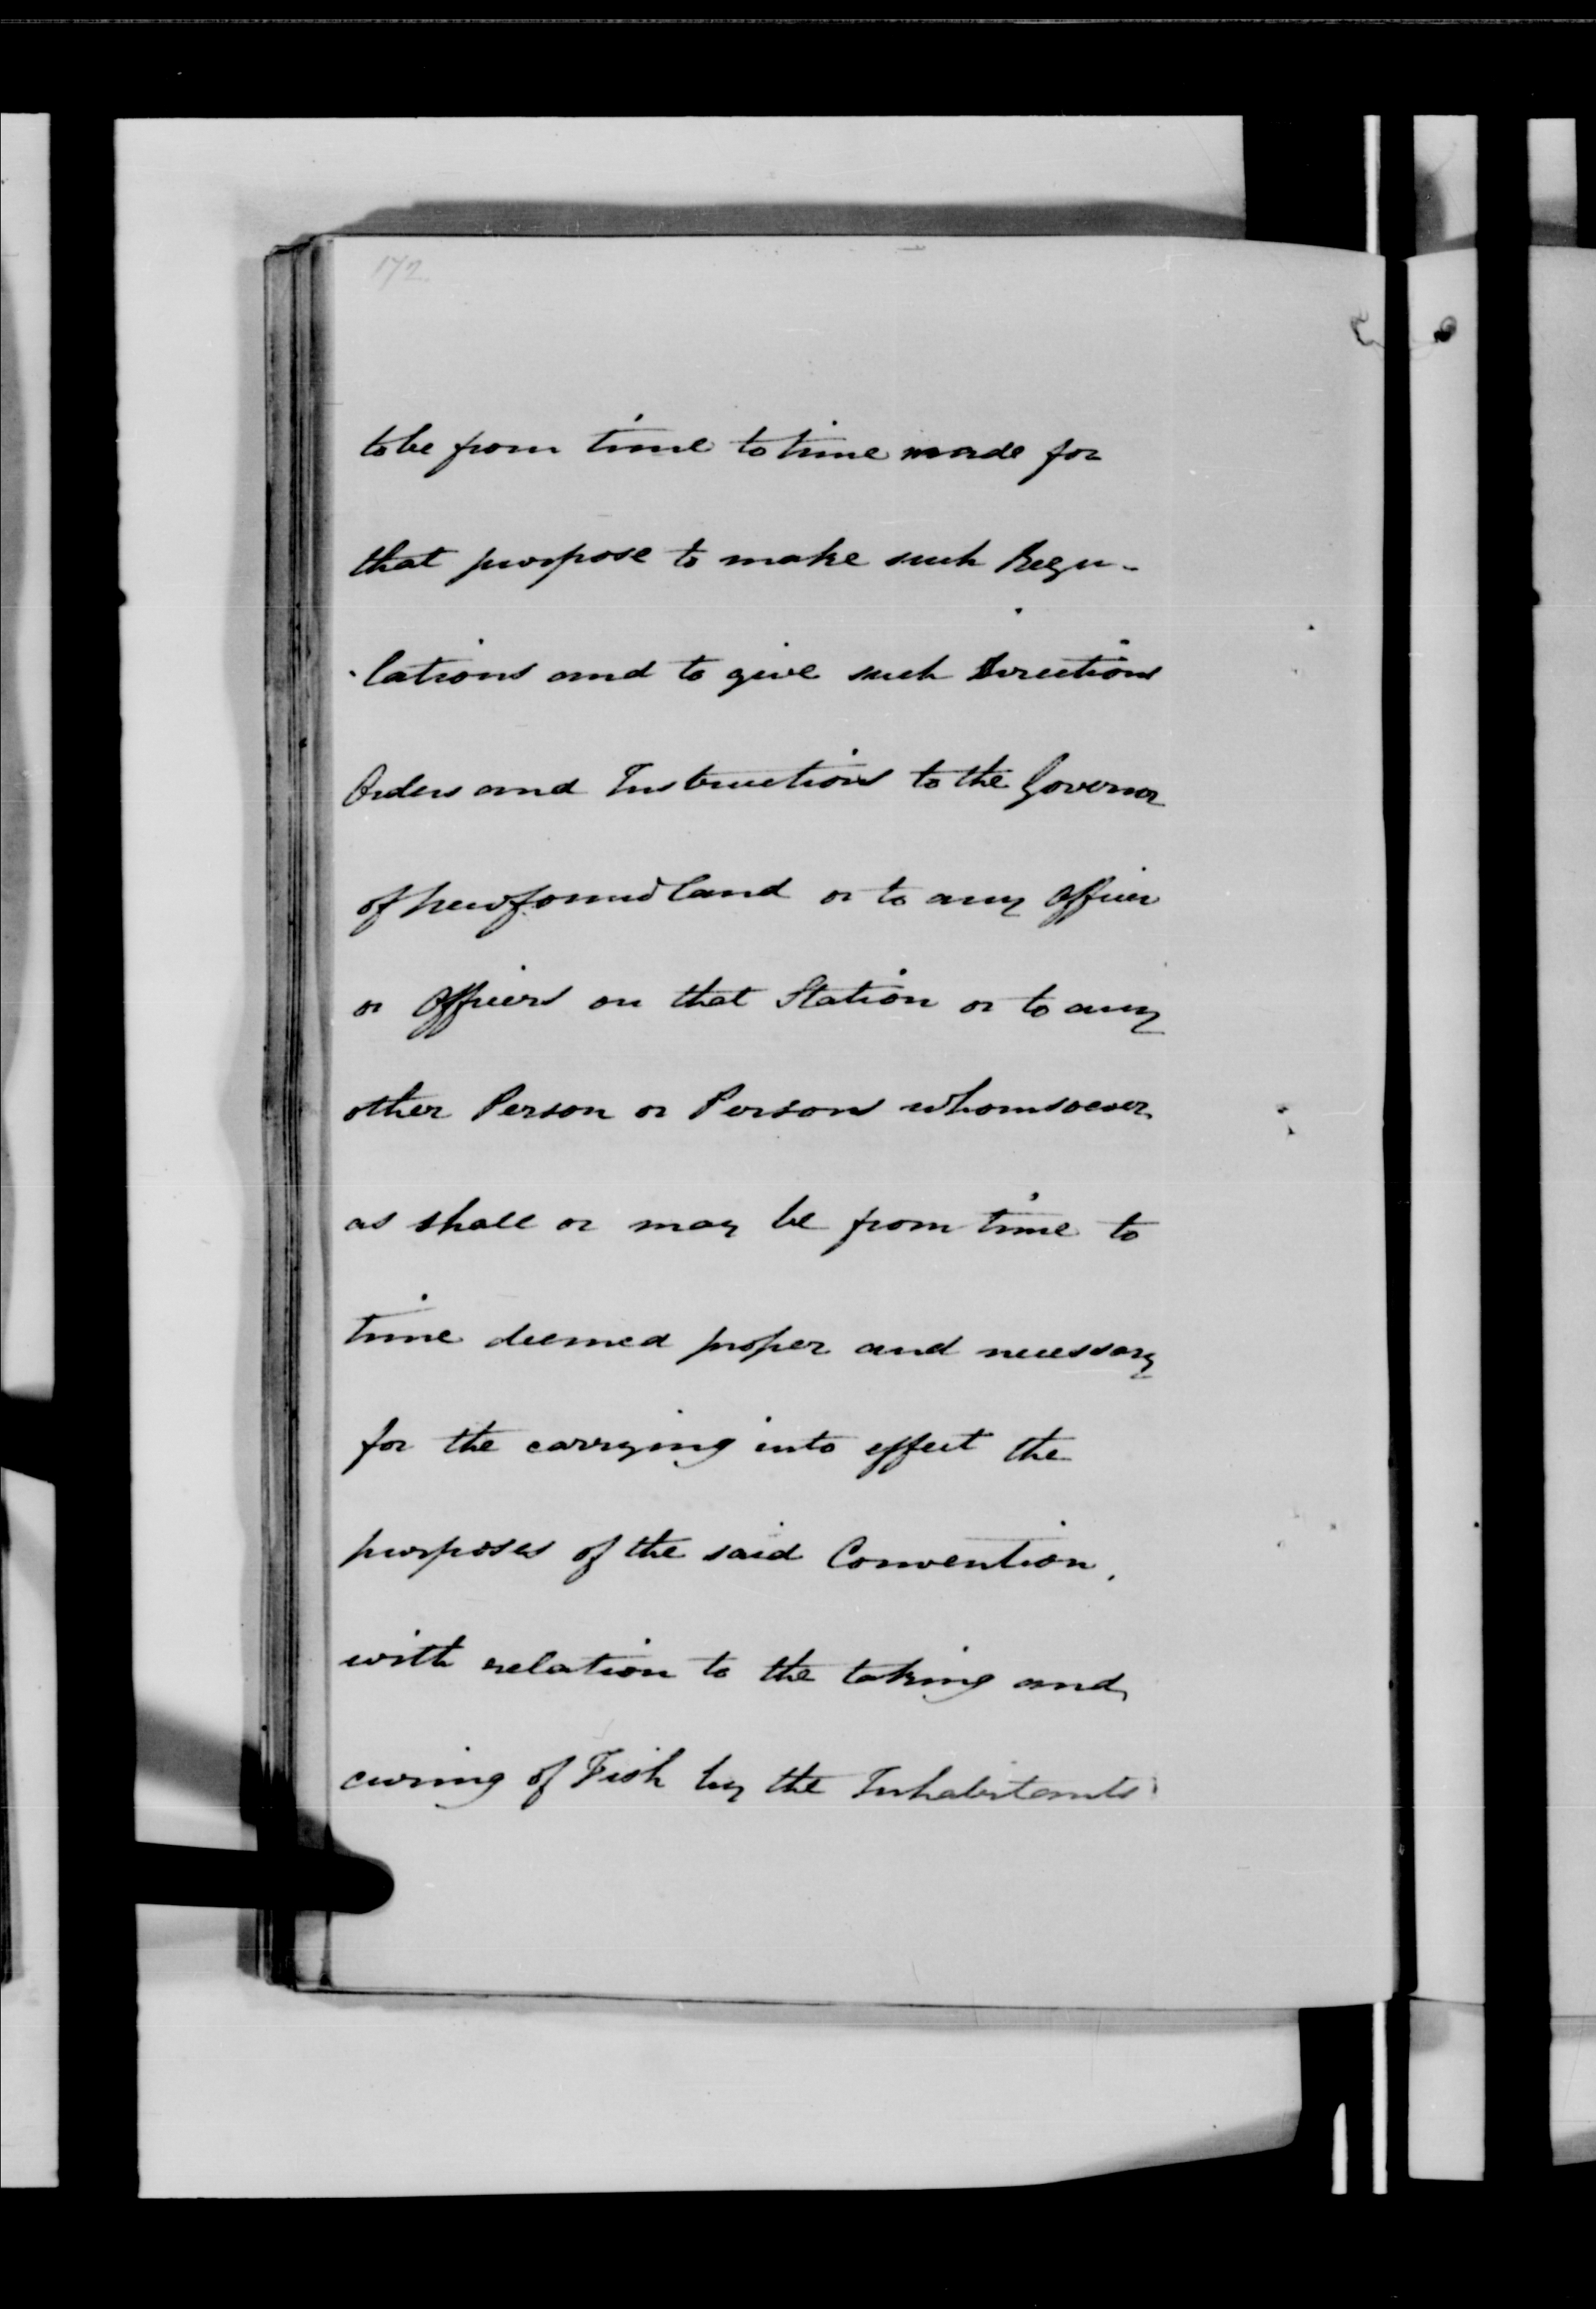 172
to be from time to time made for
that purpose to make such Regu-
-lations and to give such Directions
Orders and Instructions to the Governor
of Newfoundland or to any Officer
or Officers on that Station or to any
other Person or Persons whomsoever
as shall or may be from time to
time deemed proper and necessary
for the carrying into effect the
purposes of the said Convention,
with relation to the taking and
curing of Fish by the Inhabitants